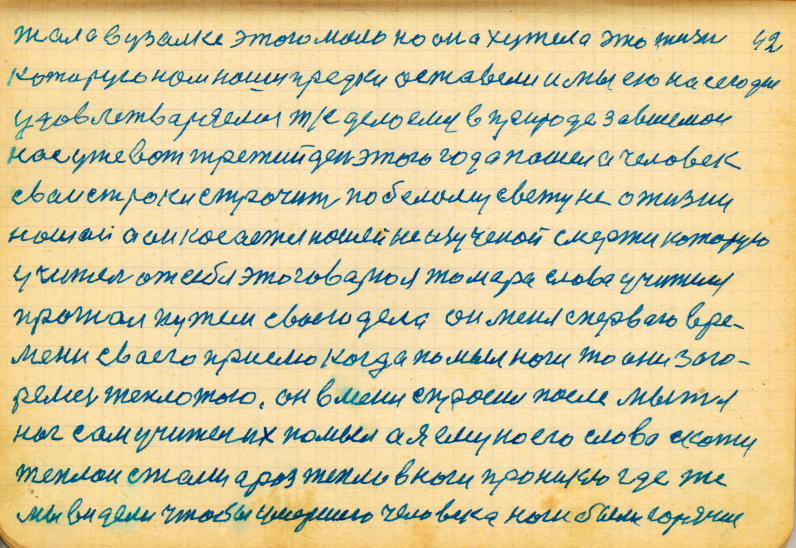 жала в узалке этого мало но она хутела это жизн 42
которую нам наши предки оставели и мы ею на сегодня
удовлетваряемся т/к делоему в природе завшемся
нас уже вот третий ден этого года пошел а человек
сваи строки строчит по белому свету не о жизни
нашай а он косаетея нашей не изученой смерти которую
учител от себя это говарил я томара слова учителя
прогнал путем своего дела он меня с перваго вре-
мени своего приемо когда помыл ноги то они заго-
релис теплотою, он в меня спросил после мытья
ног сам учител их помыл а я ему на его слова скажу
теплои стали а раз тепло в ноги проникло где же
мы видели чтобы умершего человека ноги были горячие